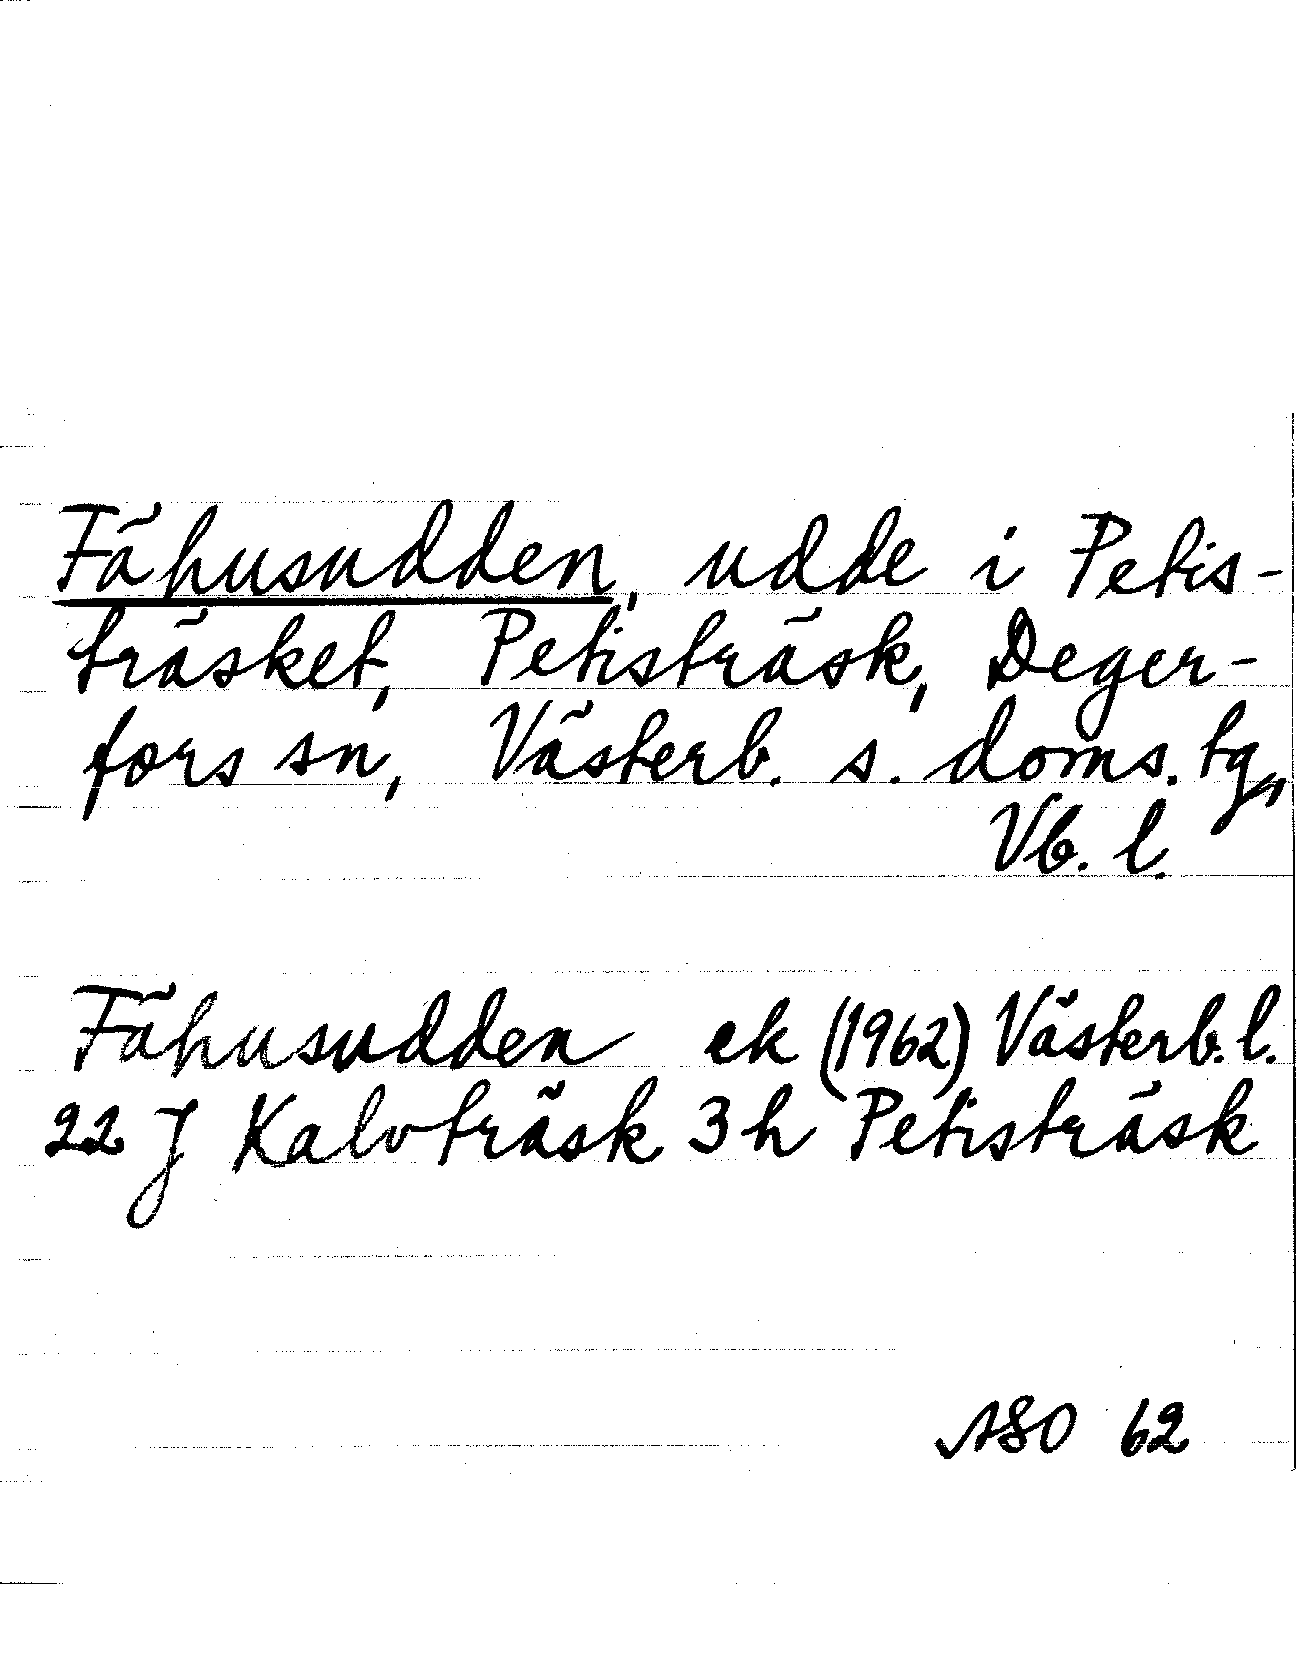 Fähusudden, udde i Petis-
träsket, Petisträsk, Deger-
fors sn, Västerb. s. doms. tg,,
Vb. l.
Fähusudden ek (1962) Västerb. l.
22 J Kalvträsk 3 h Petisträsk
ASO 62